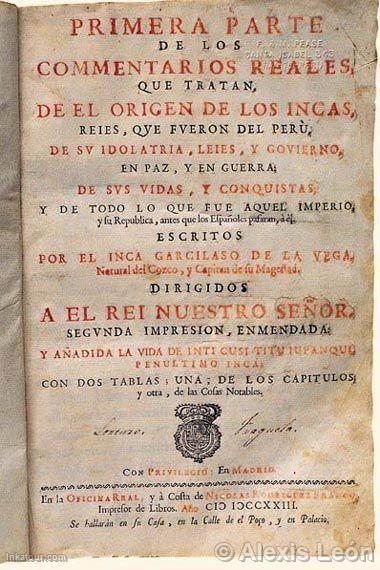 PRIMERA PARTE
DE LOS
COMMENTARIOS REALES,
QUE TRATAN,
DE EL ORIGEN DE LOS INCAS,
REIES, QVE FVERON DEL PERÙ,
DE SV IDOLATRIA, LEIES, Y GOVIERNO,
EN PAZ, Y EN GUERRA;
DE SVS VIDAS, Y CONQUISTAS;
Y DE TODO LO QUE FUE AQUEL IMPERIO,
y su Republica, antes que los Españoles pasaran, à él.
ESCRITOS
POR EL INCA GARCILASO DE LA VEGA,
Natural del Cozco, y Capitan de su Magestad.
DIRIGIDOS
A EL REI NUESTRO SEÑOR.
SEGVNDA IMPRESION, ENMENDADA;
Y AÑADIDA LA VIDA DE INTI CUSI TITU IUPANQUI,
PENULTIMO INCA;
CON DOS TABLAS; UNA; DE LOS CAPITULOS;
y otra, de las Cosas Notables.
Lorenzo
CON PRIVILEGIO: EN MADRID.
En la OFICINA REAL, y à Costa de NICOLAS RODRIGUEZ FRANCO,
Impresor de Libros. Año CIƆ IƆCCXXIII.
Se hallaràn en su Casa, en la Calle de el Poço, y en Palacio.
Inkatour.com
© Alexis León